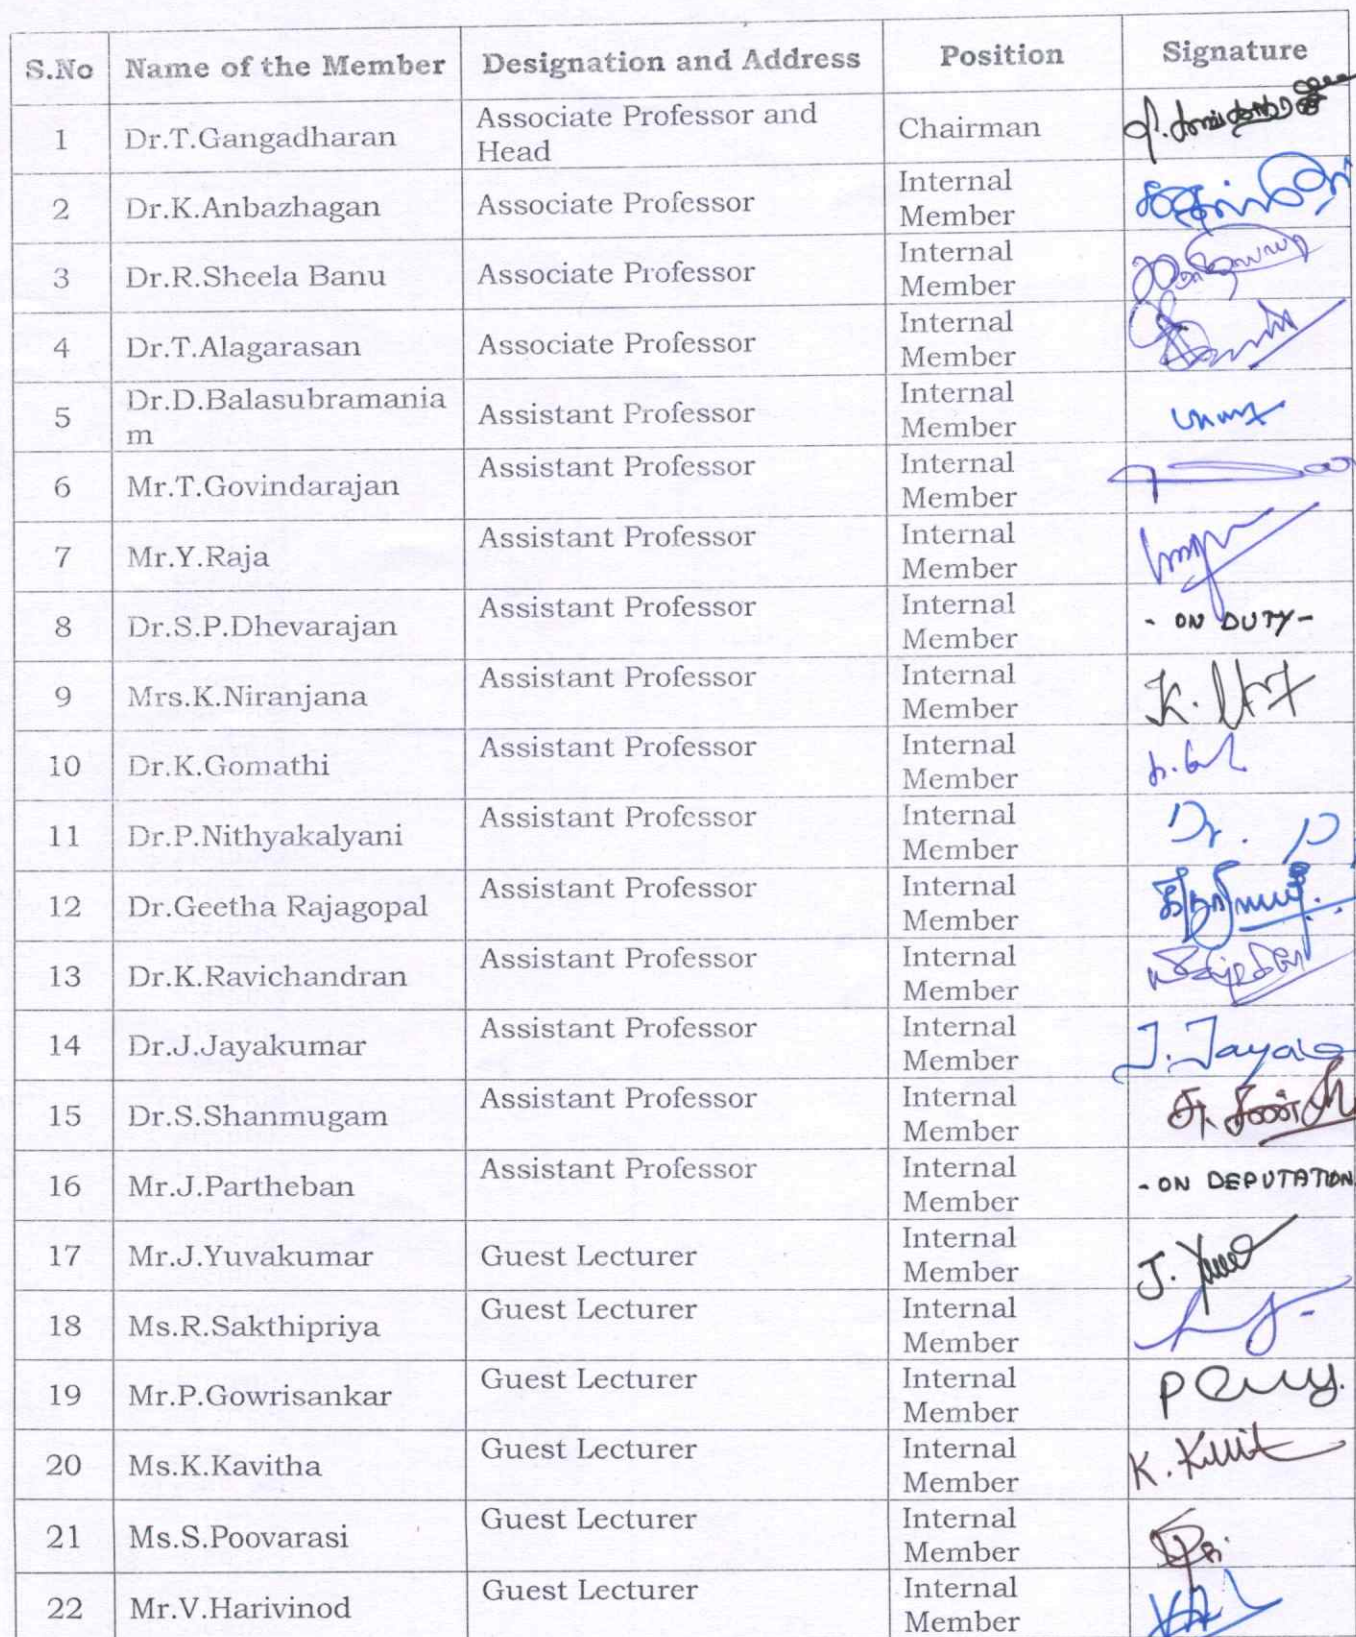 S.No Name of the Member Designation and Address Position Signature
1 Dr.T.Gangadharan Associate Professor and Head Chairman
2 Dr.K.Anbazhagan Associate Professor Internal Member
3 Dr.R.Sheela Banu Associate Professor Internal Member
4 Dr.T.Alagarasan Associate Professor Internal Member
5 Dr.D.Balasubramaniam Assistant Professor Internal Member
6 Mr.T.Govindarajan Assistant Professor Internal Member
7 Mr.Y.Raja Assistant Professor Internal Member
8 Dr.S.P.Dhevarajan Assistant Professor Internal Member - ON DUTY -
9 Mrs.K.Niranjana Assistant Professor Internal Member
10 Dr.K.Gomathi Assistant Professor Internal Member
11 Dr.P.Nithyakalyani Assistant Professor Internal Member Dr. P
12 Dr.Geetha Rajagopal Assistant Professor Internal Member
13 Dr.K.Ravichandran Assistant Professor Internal Member
14 Dr.J.Jayakumar Assistant Professor Internal Member
15 Dr.S.Shanmugam Assistant Professor Internal Member
16 Mr.J.Partheban Assistant Professor Internal Member - ON DEPUTATION
17 Mr.J.Yuvakumar Guest Lecturer Internal Member
18 Ms.R.Sakthipriya Guest Lecturer Internal Member
19 Mr.P.Gowrisankar Guest Lecturer Internal Member
20 Ms.K.Kavitha Guest Lecturer Internal Member
21 Ms.S.Poovarasi Guest Lecturer Internal Member
22 Mr.V.Harivinod Guest Lecturer Internal Member